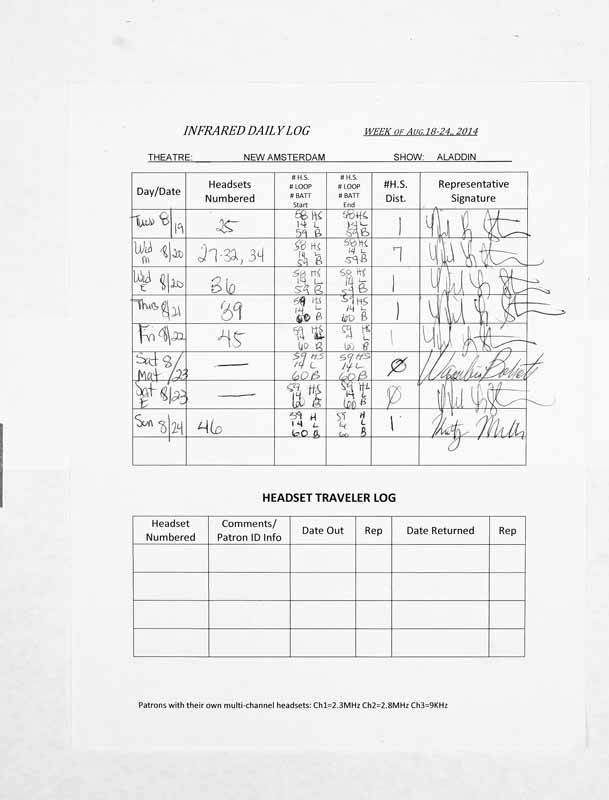 INFRARED DAILY LOG WEEK OF AUG.18-24,, 2014
THEATRE: NEW AMSTERDAM SHOW: ALADDIN
Day/Date Headsets Numbered # H.S. # LOOP # BATT Start # H.S. # LOOP # BATT End #H.S. Dist. Representative Signature
Tues 8/19 25 58 HS 14 L 59 B 58 HS 14 L 59 B 1
Wed M 8/20 27-32, 34 58 HS 14 L 59 B 58 HS 14 L 59 B 7
Wed E 8/20 36 58 HS 14 L 59 B 58 HS 14 L 59 B 1
Thurs 8/21 39 59 HS 14 L 60 B 59 HS 14 L 60 B 1
Fri 8/22 45 59 HS 14 L 60 B 59 HS 14 L 60 B 1
Sat Mat 8/23 — 59 HS 14 L 60 B 59 HS 14 L 60 B Ø
Sat E 8/23 — 59 HS 14 L 60 B 59 14 60 B Ø
Sun 8/24 46 59 H 14 L 60 B 59 H L 60 B 1
HEADSET TRAVELER LOG
Headset Numbered Comments/ Patron ID Info Date Out Rep Date Returned Rep
Patrons with their own multi-channel headsets: Ch1=2.3MHz Ch2=2.8MHz Ch3=9KHz